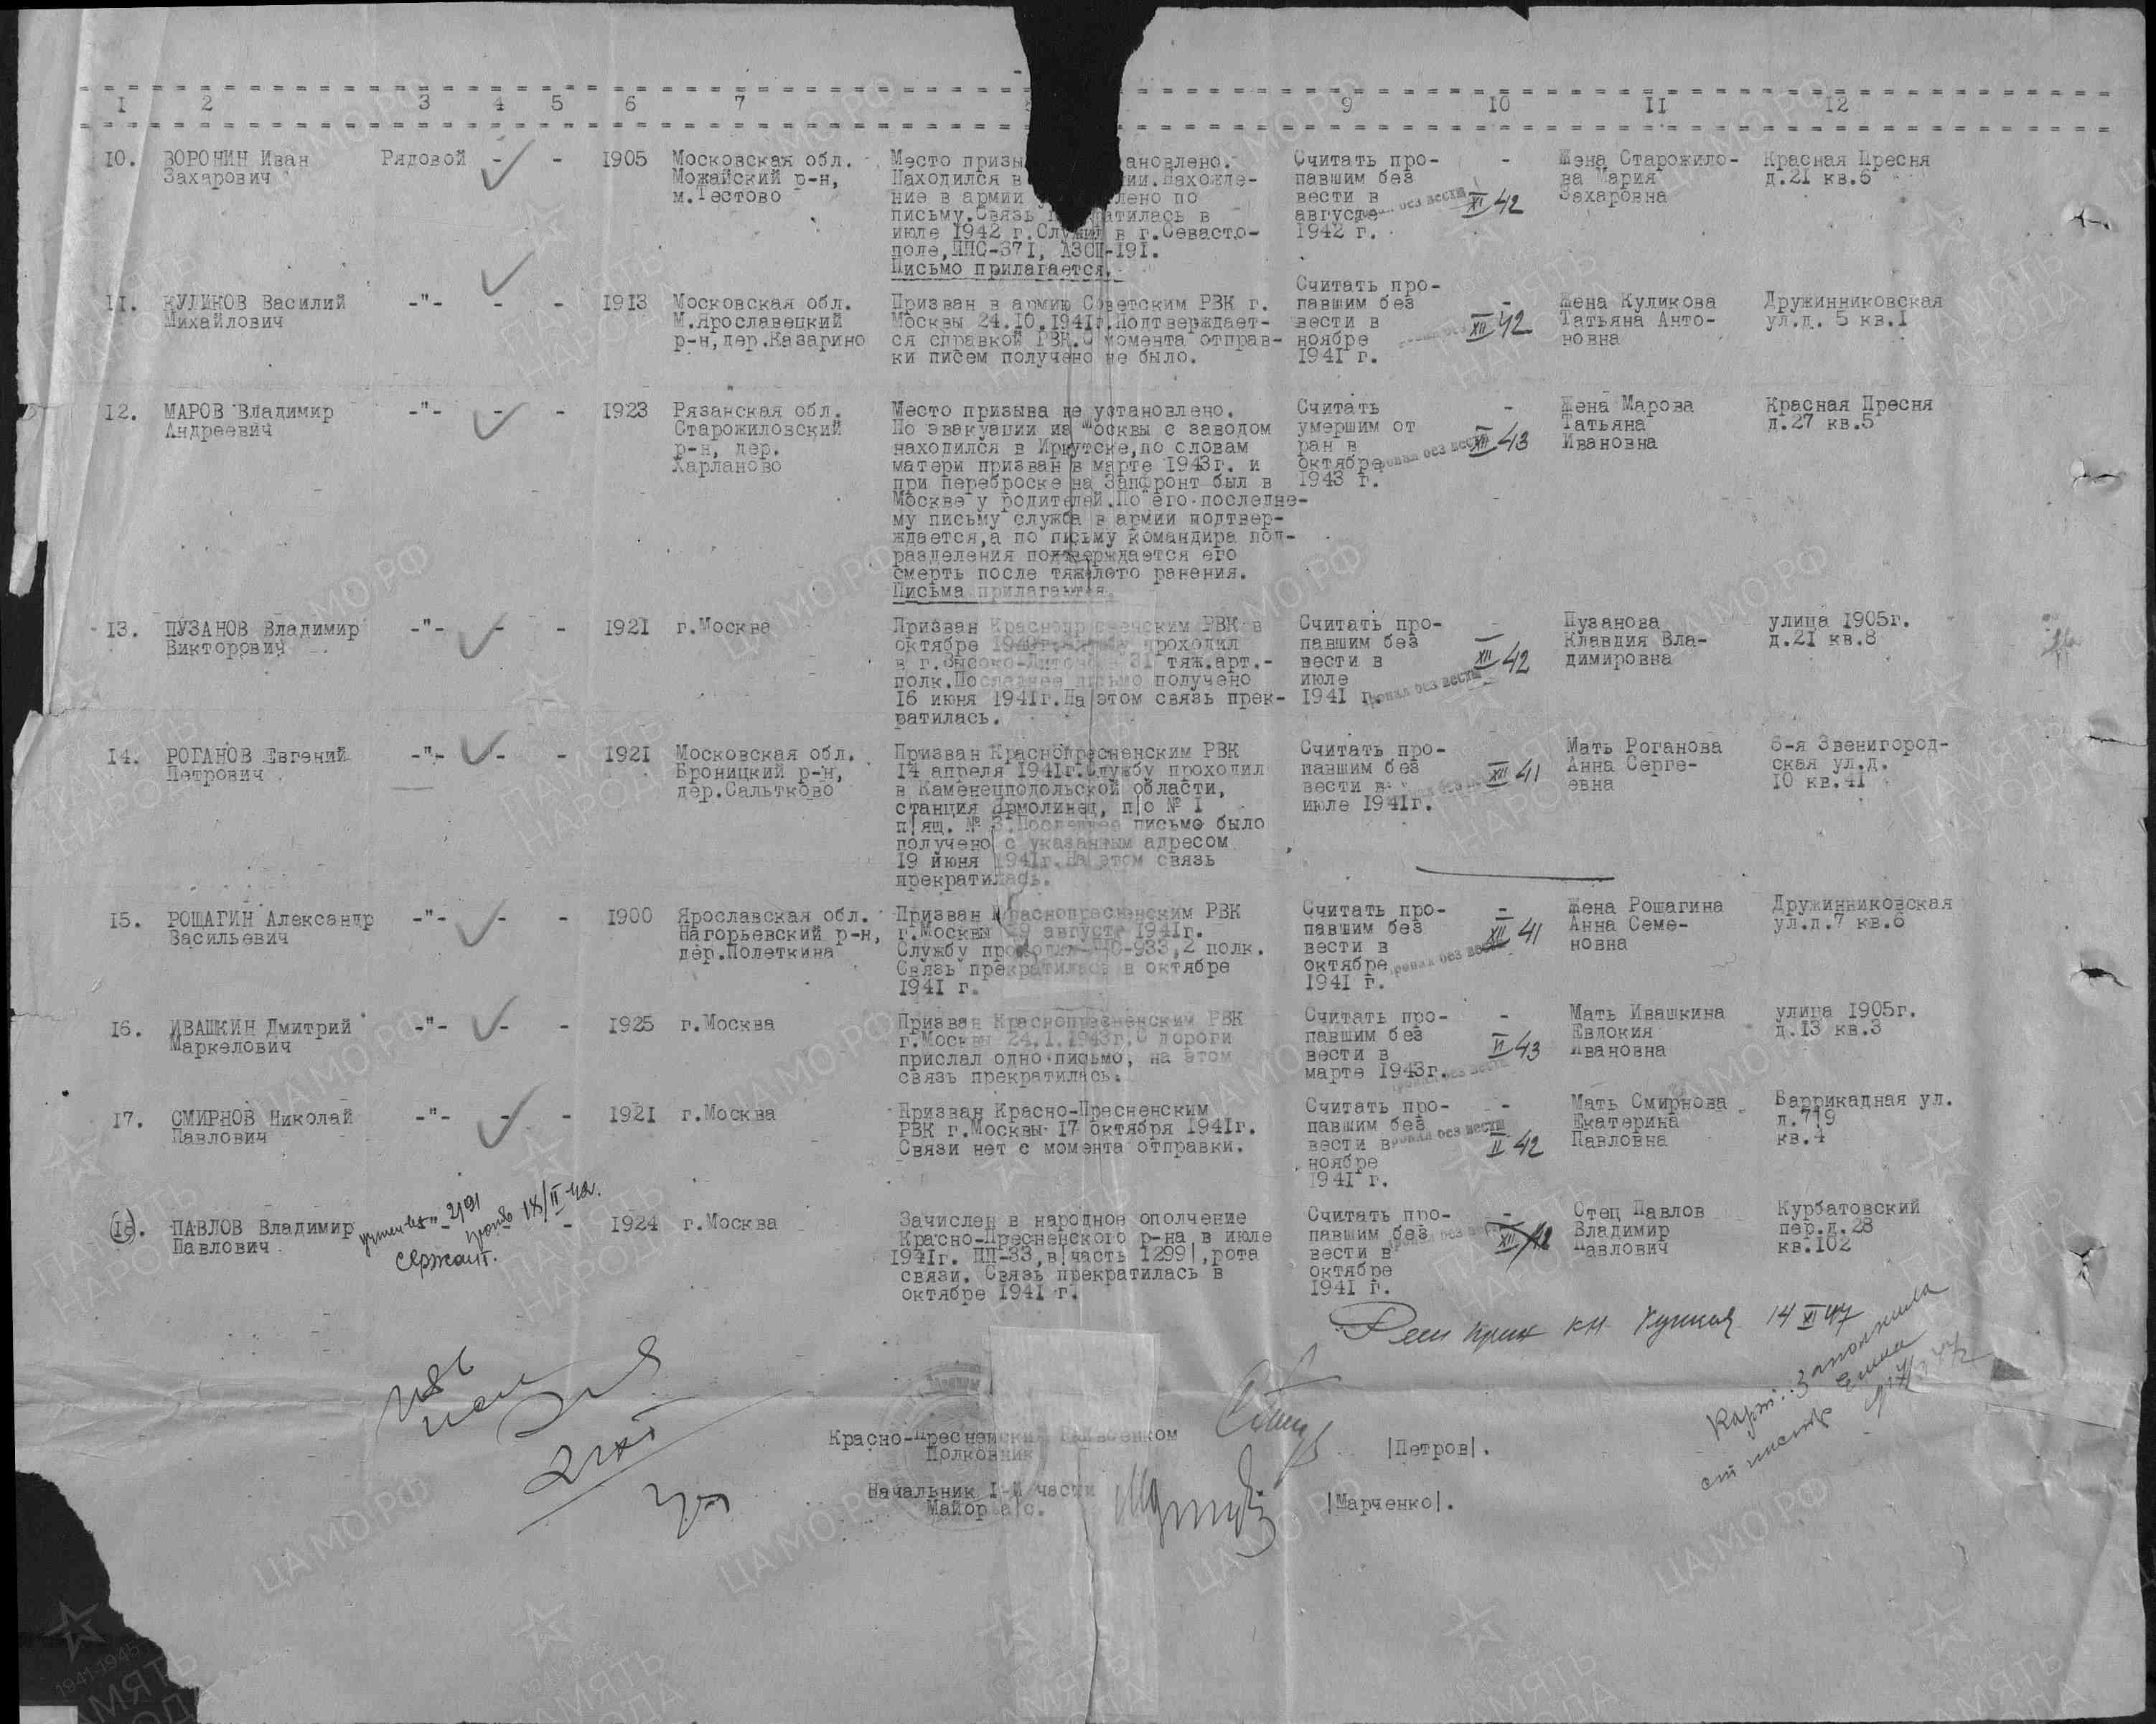 1 2 3 4 5 6 7 9 10 11 12
10. ВОРОНИН Иван Захарович
Рядовой - -
1905
Московская обл.
Можайский р-н,
м.Тестово
Место призы ановлено.
Находился в ии.Нахожде-
ние в армии лено по
письму.Связь атилась в
июле 1942 г.Служил в г.Севасто-
поле,ППС-371, АЗСП-191.
Письмо прилагается.
Считать про-
павшим без
вести в
августе
1942 г.
- XI 42
Жена Старожило-
ва Мария
Захаровна
Красная Пресня
д.21 кв.6
11. КУЛИКОВ Василий
Михайлович
-"- - -
1913
Московская обл.
М.Ярославецкий
р-н,дер.Казарино
Призван в армию Советским РВК г.
Москвы 24.10.1941г.Подтверждает-
ся справкой РВК.С момента отправ-
ки писем получено не было.
Считать про-
павшим без
вести в
ноябре
1941 г.
- XII 42
Жена Куликова
Татьяна Анто-
новна
Дружинниковская
ул.д. 5 кв.1
12. МАРОВ Владимир
Андреевич
-"- - -
1923
Рязанская обл.
Старожиловский
р-н, дер.
Харланово
Место призыва не установлено.
По эвакуации из Москвы с заводом
находился в Иркутске,по словам
матери призван в марте 1943г. и
при переброске на Запфронт был в
Москве у родителей.По его последне-
му письму служба в армии подтвер-
ждается,а по письму командира под-
разделения подтверждается его
смерть после тяжелого ранения.
Письма прилагаются.
Считать
умершим от
ран в
октябре
1943 г.
- XII 43
Жена Марова
Татьяна
Ивановна
Красная Пресня
д.27 кв.5
13. ПУЗАНОВ Владимир
Викторович
-"- - -
1921
г.Москва
Призван Краснопресненским РВК в
октябре проходил
в г.Высоко-Литовск 31 тяж.арт.-
полк.Последнее письмо получено
16 июня 1941г.На этом связь прек-
ратилась.
Считать про-
павшим без
вести в
июле
1941 г.
- XII 42
Пузанова
Клавдия Вла-
димировна
улица 1905г.
д.21 кв.8
14. РОГАНОВ Евгений
Петрович
-"- - -
1921
Московская обл.
Броницкий р-н,
дер.Сальтково
Призван Краснопресненским РВК
14 апреля 1941г.Службу проходил
в Каменецподольской области,
станция Ярмолинец, п|о № 1
п|ящ. № 3.Последнее письмо было
получено с указанным адресом
19 июня 1941г.На этом связь
прекратилась.
Считать про-
павшим без
вести в
июле 1941г.
- XII 41
Мать Роганова
Анна Серге-
евна
6-я Звенигород-
ская ул.д.
10 кв.41
15. РОШАГИН Александр
Васильевич
-"- - -
1900
Ярославская обл.
Нагорьевский р-н,
дер.Полеткина
Призван Краснопресненским РВК
г.Москвы 29 августа 1941г.
Службу проходил ППС-933,2 полк.
Связь прекратилась в октябре
1941 г.
Считать про-
павшим без
вести в
октябре
1941 г.
- XII 41
Жена Рошагина
Анна Семе-
новна
Дружинниковская
ул.д.7 кв.6
16. ИВАШКИН Дмитрий
Маркелович
-"- - -
1925
г.Москва
Призван Краснопресненским РВК
г.Москвы 24.1.1943г.С дороги
прислал одно письмо, на этом
связь прекратилась.
Считать про-
павшим без
вести в
марте 1943г.
- VI 43
Мать Ивашкина
Евдокия
Ивановна
улица 1905г.
д.13 кв.3
17. СМИРНОВ Николай
Павлович
-"- - -
1921
г.Москва
Призван Красно-Пресненским
РВК г.Москвы 17 октября 1941г.
Связи нет с момента отправки.
Считать про-
павшим без
вести в
ноябре
1941 г.
- II 42
Мать Смирнова
Екатерина
Павловна
Баррикадная ул.
д.7|9
кв.4
18. ПАВЛОВ Владимир
Павлович
2191
IX/II-42.
Сержант.
-"- -
1924
г.Москва
Зачислен в народное ополчение
Красно-Пресненского р-на в июле
1941г. ПП-33,в|часть 1299|,рота
связи. Связь прекратилась в
октябре 1941 г.
Считать про-
павшим без
вести в
октябре
1941 г.
- XII 42
Отец Павлов
Владимир
Павлович
Курбатовский
пер.д.28
кв.102
14 XI 47
Карт. заполнила
Красно-Пресненский Райвоенком
Полковник
|Петров|.
Начальник 1-й части
Майор а|с.
|Марченко|.